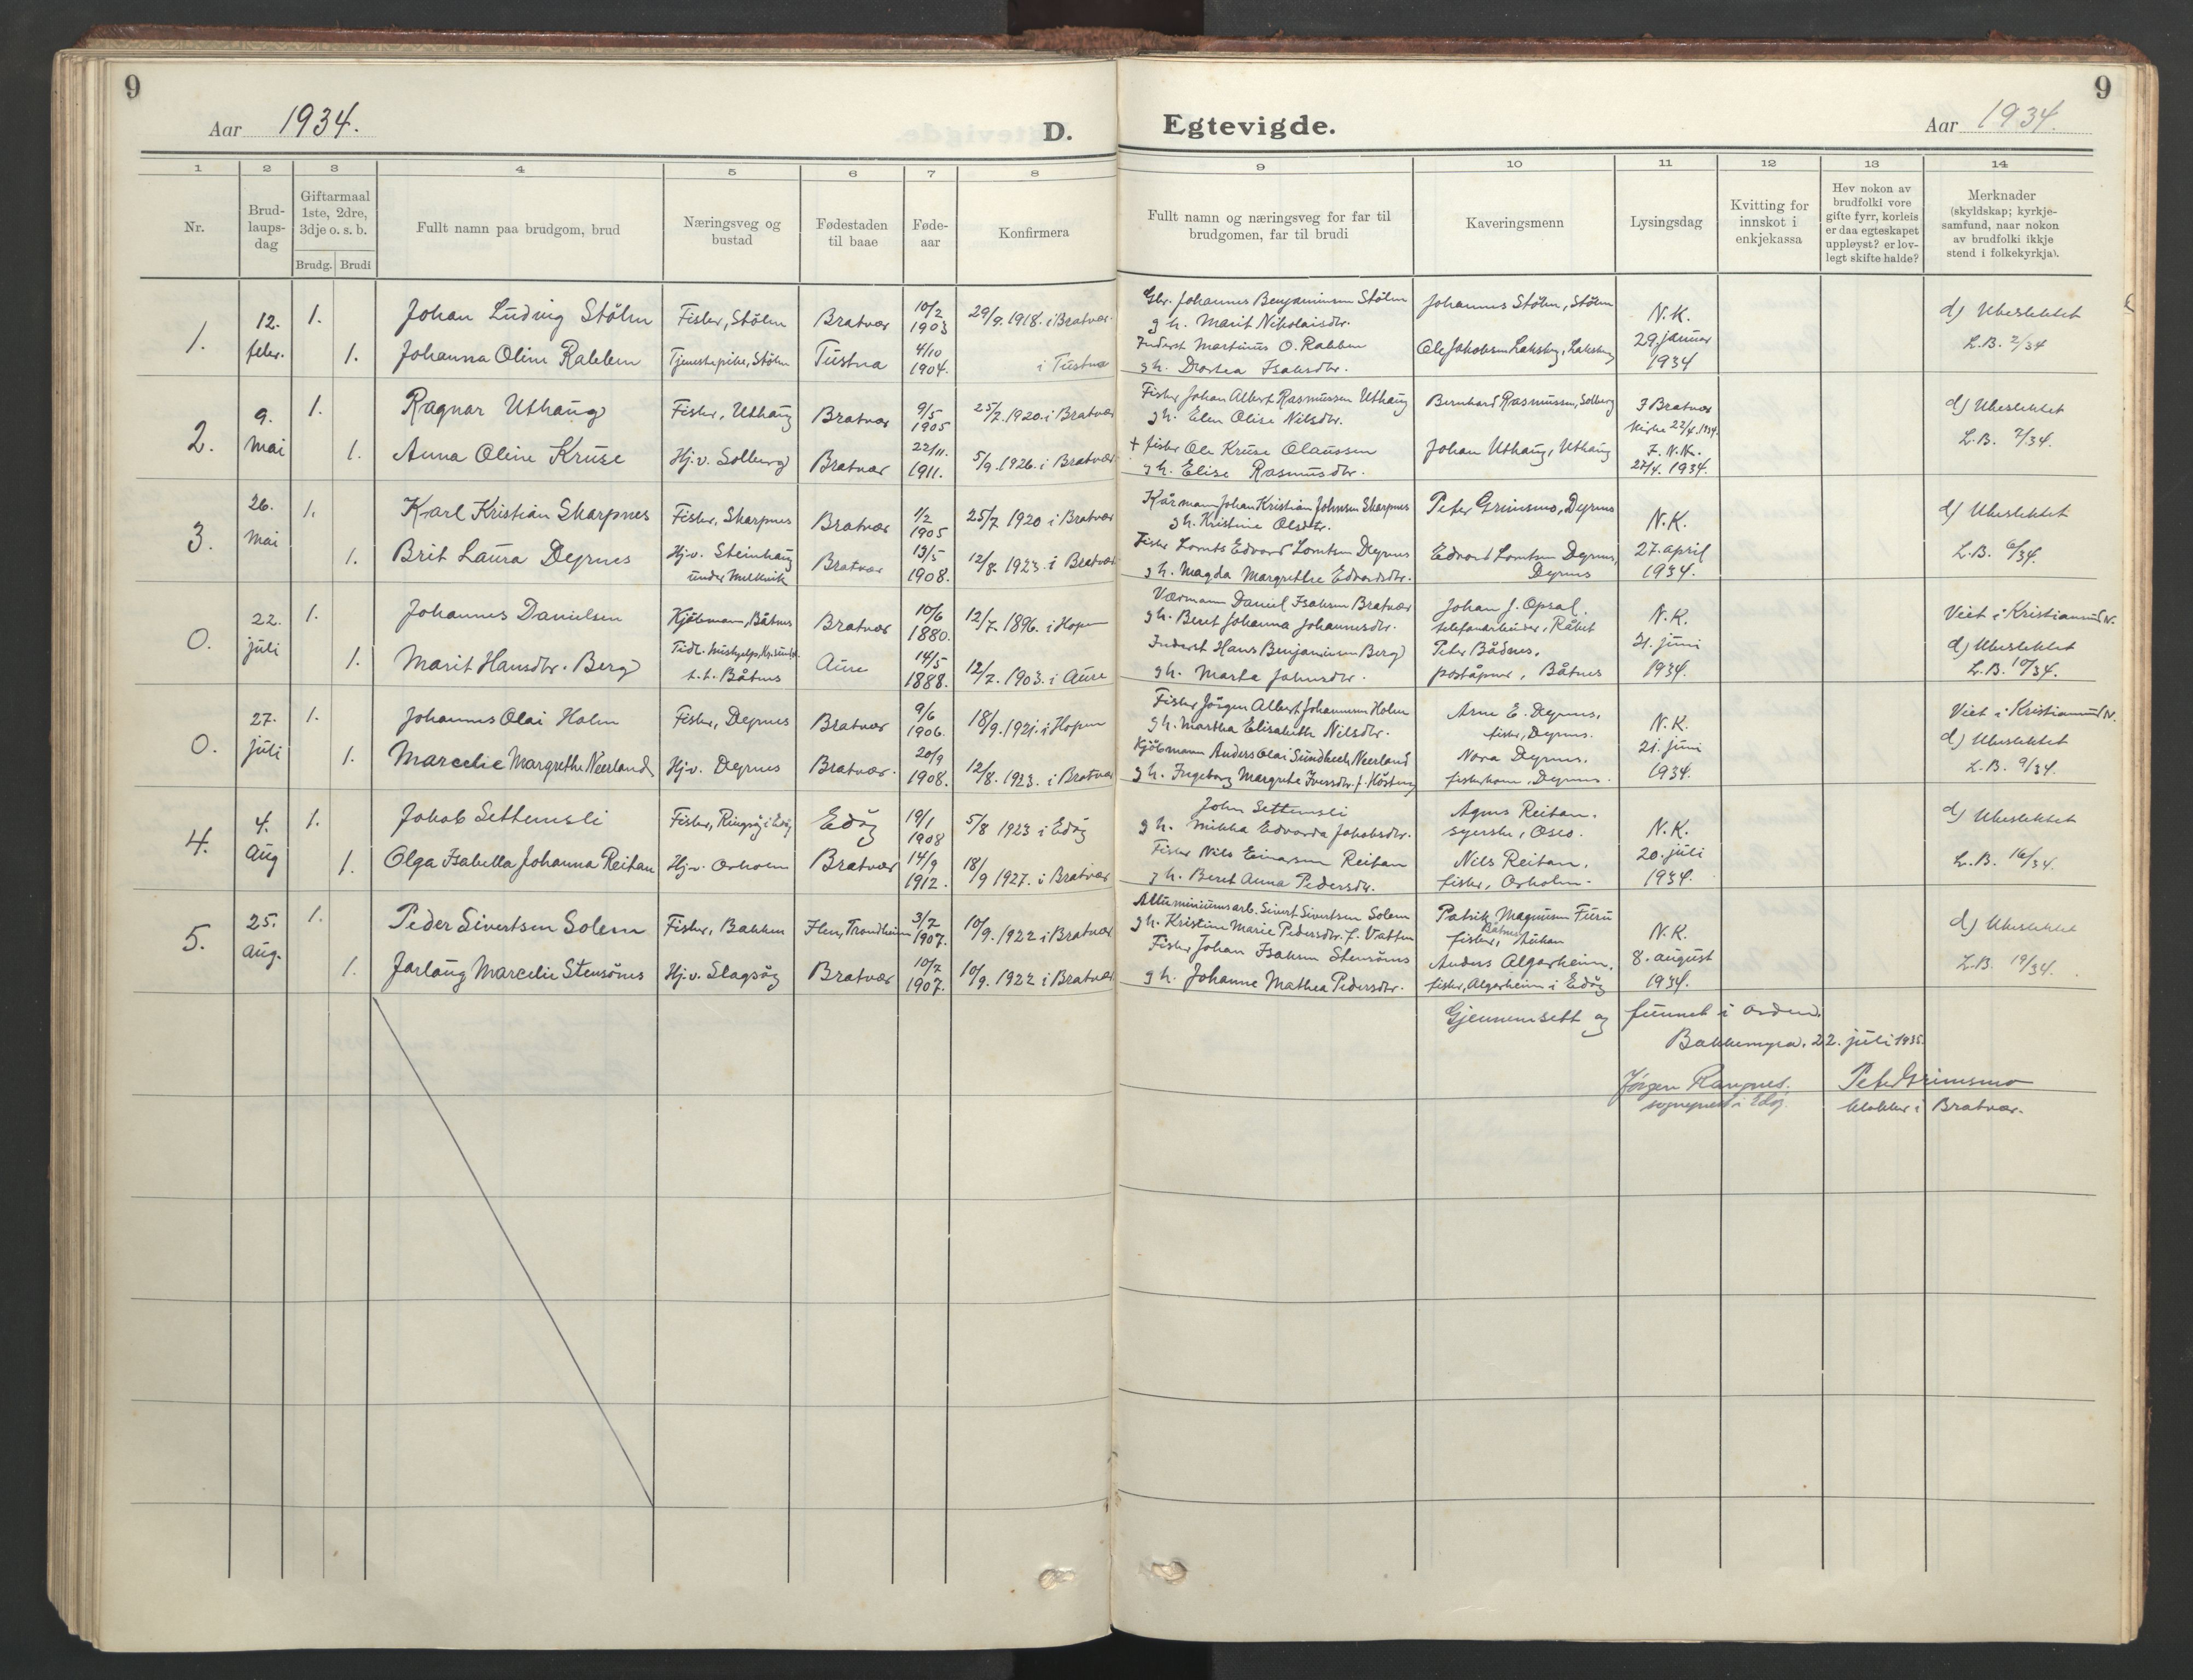 9
Aar 1934.
D.
1
2
3
4
5
6
7
8
Nr.
Brud-
laups-
dag
Giftarmaal
1ste, 2dre,
3dje o. s. b.
Brudg.
Brudi
Fullt namn paa brudgom, brud
Næringsveg og
bustad
Fødestaden
til baae
Føde-
aar
Konfirmera
1.
12.
febr.
1.
Johan Ludvig Stölen
Fisker, Stölen
Bratvær
10/2
1903
29/9. 1918. i Bratvær.
1.
Johanna Oline Rabben
Tjenestepike, Stölen
Tustna
4/10
1904.
i Tustna
2.
9.
mai
1.
Ragnar Uthaug
Fisker, Uthaug
Bratvær
9/5
1905
25/7. 1920. i Bratvær
1.
Anna Oline Kruse
Hj.v. Solberg
Bratvær
22/11.
1911.
5/9. 1926. i Bratvær
3.
26.
mai
1.
Karl Kristian Skarpnes
Fisker, Skarpnes
Bratvær
1/2
1905
25/7 1920 i Bratvær
1.
Brit Laura Dyrnes
Hj.v. Steinhaug
under
Bratvær
13/5
1908.
12/8. 1923. i Bratvær
0.
22.
juli
1.
Johannes Danielsen
Kjöbmann, Båtnes
Bratvær
10/6
1880.
12/7. 1896. i Hopen
1.
Marit Hansdtr. Berg
Tidl. hushjelp, Kr.sund N.
t.t. Båtnes
Aure
14/5
1888.
12/7. 1903. i Aure
0.
27.
juli
1.
Johannes Olai Holm
Fisker, Dyrnes
Bratvær
9/6
1906.
18/9. 1921. i Hopen
1.
Marcelie Margrethe Neerland
Hj.v. Dyrnes
Bratvær.
20/9
1908.
12/8. 1923. i Bratvær
4.
4.
aug
1.
Jakob Settemsli
Fisker, Ringsöy i Edöy
Edöy
19/1
1908
5/8 1923 i Edöy
1.
Olga Isabella Johanna Reitan
Hj.v. Orholm
Bratvær
14/9
1912.
18/9 1927. i Bratvær
5.
25.
aug.
1.
Peder Sivertsen Solem
Fisker, Bakken
Ilen, Trondheim
3/7
1907.
10/9. 1922 i Bratvær
1.
Jarlaug Marcelie Stensönes
Hj.v. Slagsöy
Bratvær
10/7
1907.
10/9. 1922 i Bratvær
9
Egtevigde.
Aar 1934.
9
10
11
12
13
14
Fullt namn og næringsveg for far til
brudgomen, far til brudi
Kaveringsmenn
Lysingsdag
Kvitting for
innskot i
enkjekassa
Hev nokon av
brudfolki vore
gifte fyrr, korleis
er daa egteskapet
uppløyst? er lov-
legt skifte halde?
Merknader
(skyldskap; kyrkje-
samfund, naar nokon
av brudfolki ikkje
stend i folkekyrkja).
Gbr. Johannes Benjaminsen Stölen
g h. Marit Nikolaisdtr.
Inderst Martinus O. Rabben
g h. Dortea Isaksdtr.
Johannes Stölen, Stölen
Ole Jakobsen Laksberg, Laksberg
N.K.
29 januar
1934
d) Ubeslektet
L.B. 2/34
Fisker Johan Albert Rasmussen Uthaug
g h. Elen Olise Nilsdtr.
+ fisker Ole Kruse Olaussen
g h. Elise Rasmusdtr.
Bernhard Rasmussen, Solberg
Johan Uthaug, Uthaug
I Bratvær
kirke 22/4. 1934.
I. N.K.
27/4. 1934.
d) Ubeslektet
L.B. 7/34.
Kårmann Johan Kristian Johnsen Skarpnes
g h. Kristine Olsdtr.
Fisker Lornts Edvard Lorntsen Dyrnes
g h. Magda Margrethe Edvardsdtr.
Peter Grimsmo, Dyrnes
Edvard Lorntsen Dyrnes,
Dyrnes
N.K.
27. april
1934.
d) Ubeslektet
L.B. 6/34.
Værmann Daniel Isaksen Bratvær
g h. Beret Johanna Johannesdtr.
Inderst Hans Benjaminsen Berg
g h. Marta Johnsdtr.
Johan J. Opsal.
telefonarbeider,
Peter Bådnes.
poståpner, Båtnes
N.K.
21. juni
1934.
Viet i Kristiansund N.
d) Ubeslektet
L.B. 10/34.
Fisker Jörgen Albert Johannesen Holm
g h. Martha Elisabeth Nilsdtr.
Kjöbmann Anders Olai Sundbech Neerland
g h. Ingeborg Margrete Iversdtr. f.
Arne E. Dyrnes,
fisker, Dyrnes.
Nora Dyrnes,
fiskerkone, Dyrnes.
N.K.
21. juni
1934.
Viet i Kristiansund N.
d) Ubeslektet
L.B. 9/34.
John Settemsli
g h. Mikka Edvarda Jakobsdtr.
Fisker Nils Einarsen Reitan
g h. Beret Anna Pedersdtr.
Agnes Reitan.
syerske, Oslo.
Nils Reitan.
fisker, Orholm.
N.K.
20. juli
1934.
d) Ubeslektet
L.B. 16/34.
Alluminiumsarb. Sivert Sivertsen Solem
g h. Kristine Marie Pedersdtr. f. Vatten
Fisker Johan Isaksen Stensönes
g h. Johanne Mathea Pedersdtr.
Patrik Magnusen Furu
fisker,
Anders Algarheim,
fisker, Algarheim i Edöy
N.K.
8. august
1934.
d) Ubeslektet
L.B. 19/34.
Gjennemsett og funnet i orden.
Bakkemyra. 22. juli 1935.
Jörgen
sogneprest i Edöy.
Peter Grimsmo
klokker i Bratvær.